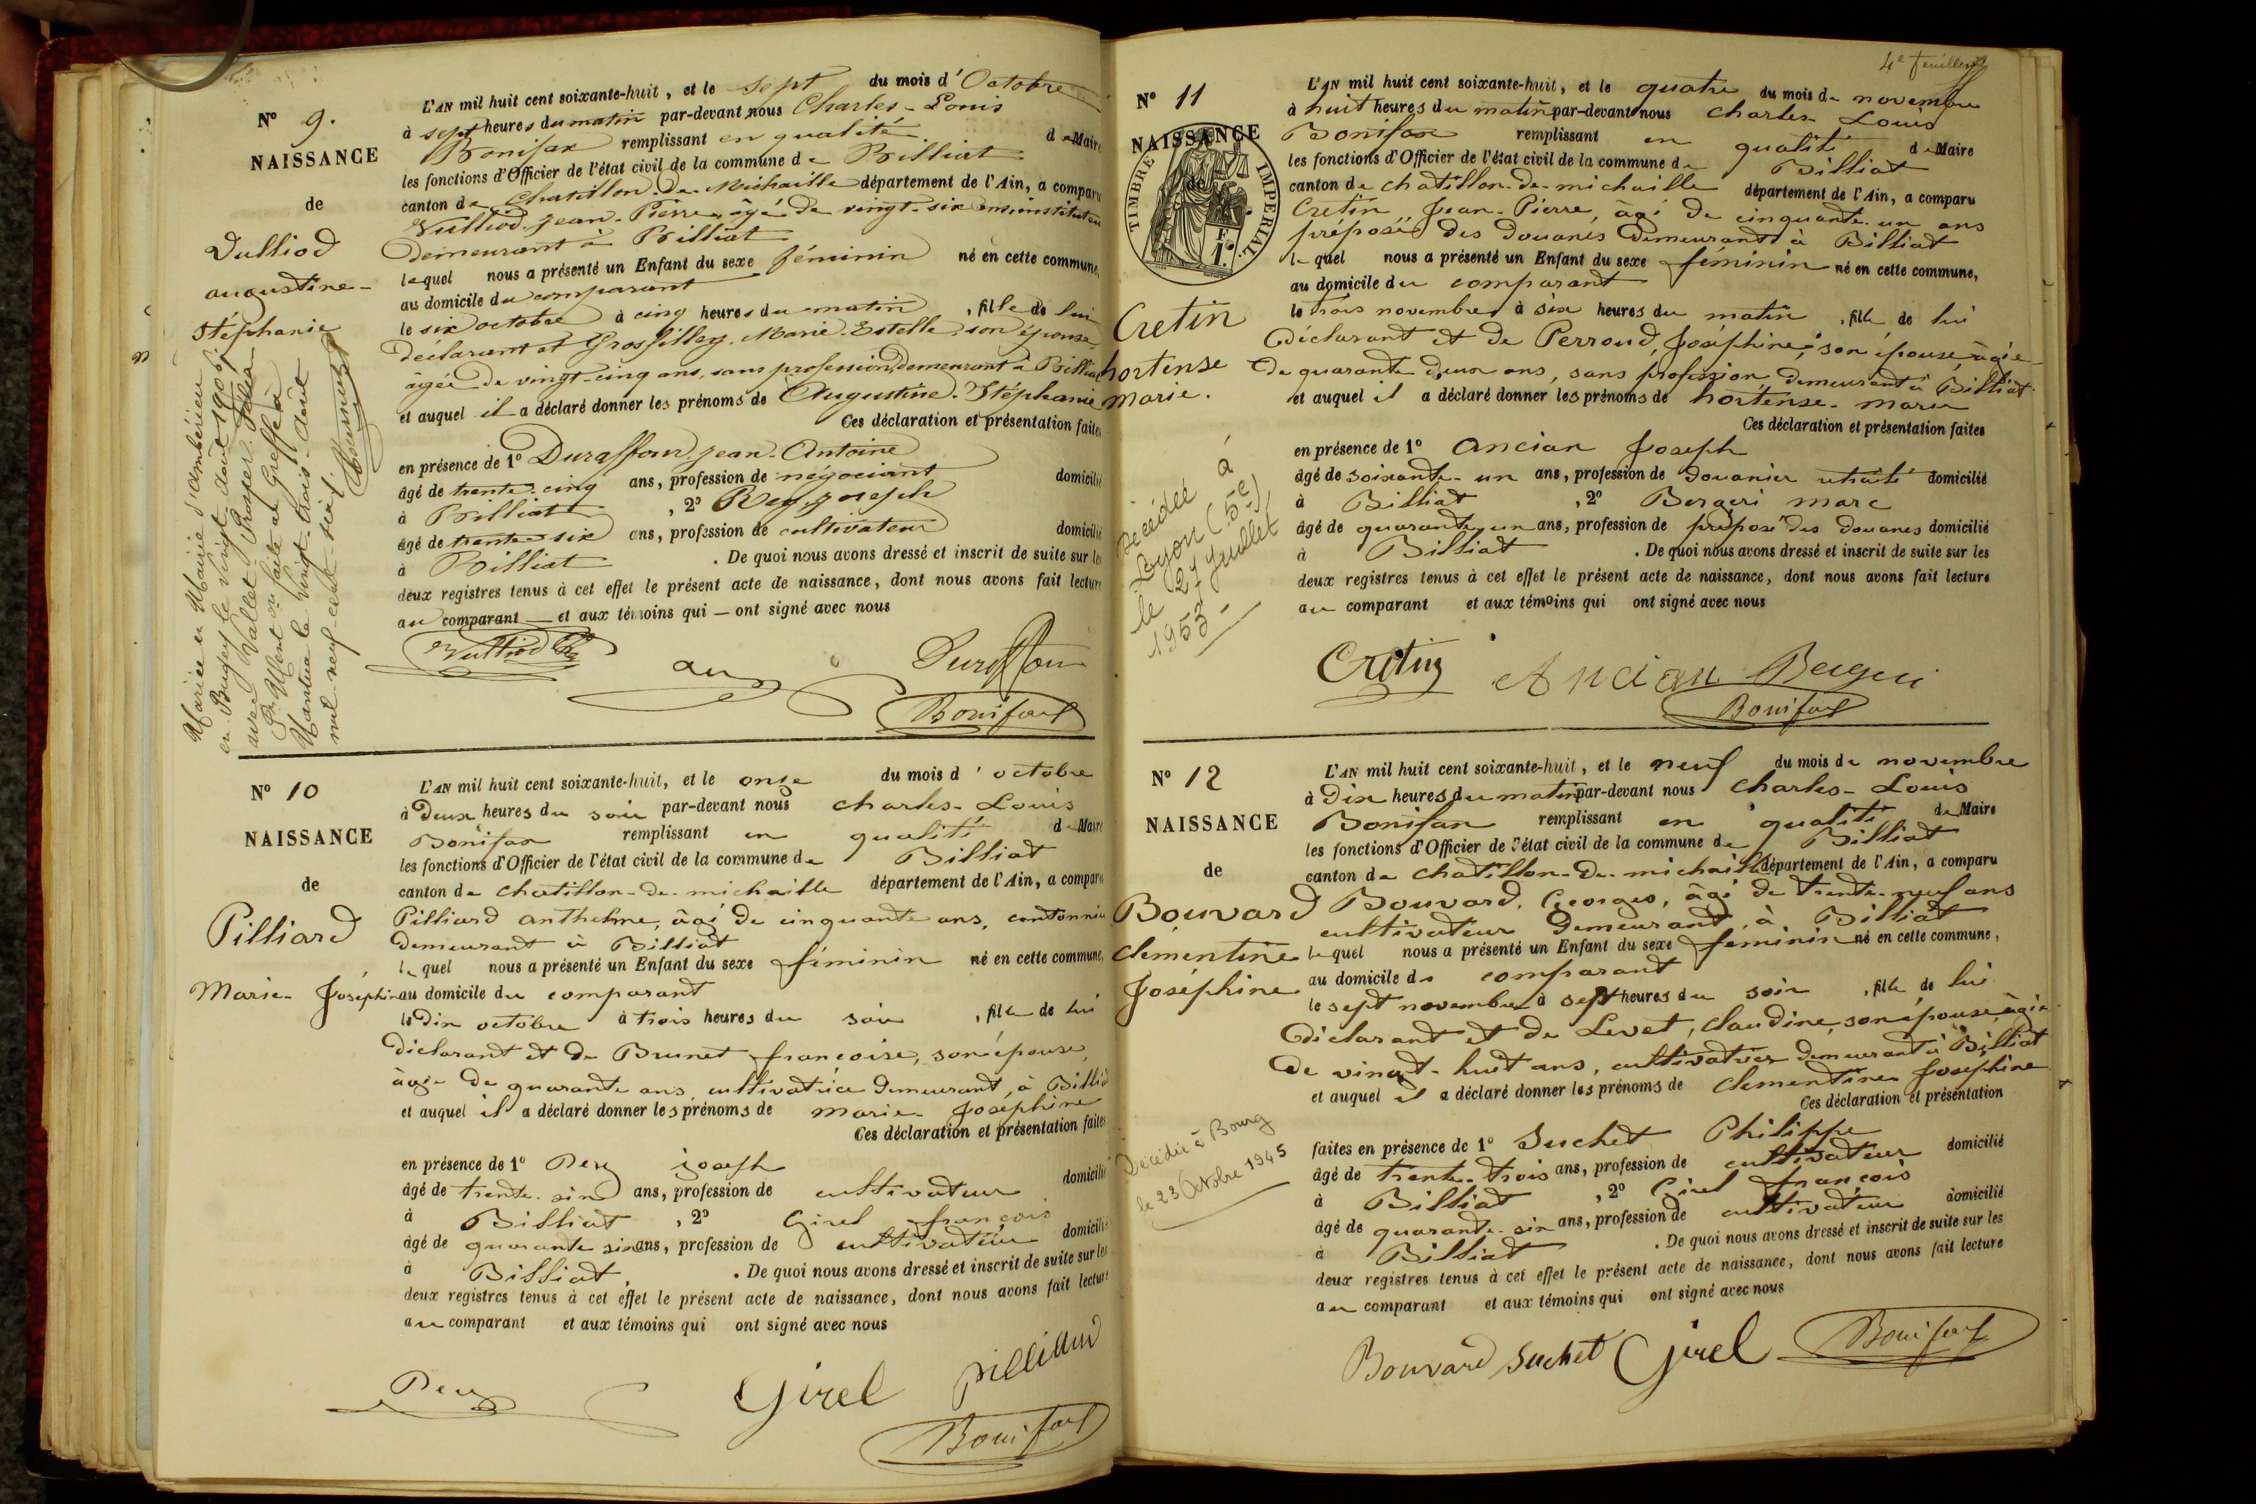 N° 9.
NAISSANCE
de
Vulliod
augustine-
Stéphanie
Mariée en Mairie d'ambérieu
en Bugey le vingt août 1906
avec Vallet Prosper
Pr Mention faite au Greffe à
Nantua le vingt-trois août
mil neuf cent six
L'AN mil huit cent soixante-huit, et le sept du mois d'Octobre
à sept heures du matin par-devant nous Charles-Louis
Bonifax remplissant en qualité de Maire
les fonctions d'Officier de l'état civil de la commune de Billiat
canton de Chatillon-de-Michaille département de l'Ain, a comparu
Vulliod Jean-Pierre, âgé de vingt-six ans instituteur
demeurant à Billiat
lequel nous a présenté un Enfant du sexe féminin né en cette commune,
au domicile du comparant
le six octobre à cinq heures du matin, fille de lui
déclarant et Grosfilley Marie-Estelle son épouse
âgée de vingt-cinq ans, sans profession, demeurant à Billiat
et auquel il a déclaré donner les prénoms de Augustine-Stéphanie
Ces déclaration et présentation faites
en présence de 1° Duraffour Jean-Antoine
âgé de trente-cinq ans, profession de négociant domicilié
à Billiat, 2° Rey Joseph
âgé de trente-six ans, profession de cultivateur domicilié
à Billiat. De quoi nous avons dressé et inscrit de suite sur les
deux registres tenus à cet effet le présent acte de naissance, dont nous avons fait lecture
au comparant — et aux témoins qui — ont signé avec nous
Vulliod
Duraffour
Bonifax
N° 10
NAISSANCE
de
Pilliard
Marie-Joséphine
L'AN mil huit cent soixante-huit, et le onze du mois d'octobre
à Deux heures du soir par-devant nous charles-Louis
Bonifax remplissant en qualité de Maire
les fonctions d'Officier de l'état civil de la commune de Billiat
canton de chatillon-de-michaille département de l'Ain, a comparu
Pilliard anthelme, âgé de cinquante ans, cantonnier
demeurant à Billiat
lequel nous a présenté un Enfant du sexe féminin né en cette commune,
au domicile du comparant
le Dix octobre à trois heures du soir, fille de lui
déclarant et de Brunet françoise, son épouse,
âgée de quarante ans cultivatrice demeurant à Billiat
et auquel il a déclaré donner les prénoms de marie-Joséphine
Ces déclaration et présentation faites
en présence de 1° Rey joseph
âgé de trente-six ans, profession de cultivateur domicilié
à Billiat, 2° Girel françois
âgé de quarante six ans, profession de cultivateur domicilié
à Billiat. De quoi nous avons dressé et inscrit de suite sur les
deux registres tenus à cet effet le présent acte de naissance, dont nous avons fait lecture
au comparant et aux témoins qui ont signé avec nous
Rey
Girel
pilliard
Bonifax
4e feuillet
N° 11
NAISSANCE
de
TIMBRE IMPERIAL
1 F.
Cretin
hortense
marie.
Décédée à
Lyon (5e)
le 27 Juillet
1953
L'AN mil huit cent soixante-huit, et le quatre du mois de novembre
à huit heures du matin par-devant nous charles-Louis
Bonifax remplissant en qualité de Maire
les fonctions d'Officier de l'état civil de la commune de Billiat
canton de chatillon-de-michaille département de l'Ain, a comparu
Cretin, Jean-Pierre, âgé de cinquante-un ans
préposé des douanes demeurant à Billiat
lequel nous a présenté un Enfant du sexe féminin né en cette commune,
au domicile du comparant
le trois novembre à six heures du matin, fille de lui
déclarant et de Perroud, Joséphine, son épouse âgée
de quarante deux ans, sans profession, demeurant à Billiat
et auquel il a déclaré donner les prénoms de hortense-marie
Ces déclaration et présentation faites
en présence de 1° ancian Joseph
âgé de soixante-un ans, profession de douanier retraité domicilié
à Billiat, 2° Bergeri marc
âgé de quarante un ans, profession de préposé des douanes domicilié
à Billiat. De quoi nous avons dressé et inscrit de suite sur les
deux registres tenus à cet effet le présent acte de naissance, dont nous avons fait lecture
au comparant et aux témoins qui ont signé avec nous
Cretin
Ancian
Bergeri
Bonifax
N° 12
NAISSANCE
de
Bouvard
Clémentine
Joséphine
Décédée à Bourg
le 23 Octobre 1945
L'AN mil huit cent soixante-huit, et le neuf du mois de novembre
à Dix heures du matin par-devant nous charles-Louis
Bonifax remplissant en qualité de Maire
les fonctions d'Officier de l'état civil de la commune de Billiat
canton de chatillon-de-michaille département de l'Ain, a comparu
Bouvard, Georges, âgé de trente-neuf ans
cultivateur demeurant à Billiat
lequel nous a présenté un Enfant du sexe féminin né en cette commune,
au domicile du comparant
le sept novembre à sept heures du soir, fille de lui
déclarant et de Levet, claudine, son épouse, âgée
de vingt-huit ans, cultivatrice demeurant à Billiat
et auquel il a déclaré donner les prénoms de clementine Joséphine
Ces déclaration et présentation
faites en présence de 1° Suchet Philippe
âgé de trente-trois ans, profession de cultivateur domicilié
à Billiat, 2° Girel françois
âgé de quarante-six ans, profession de cultivateur domicilié
à Billiat. De quoi nous avons dressé et inscrit de suite sur les
deux registres tenus à cet effet le présent acte de naissance, dont nous avons fait lecture
au comparant et aux témoins qui ont signé avec nous
Bouvard
Suchet
Girel
Bonifax